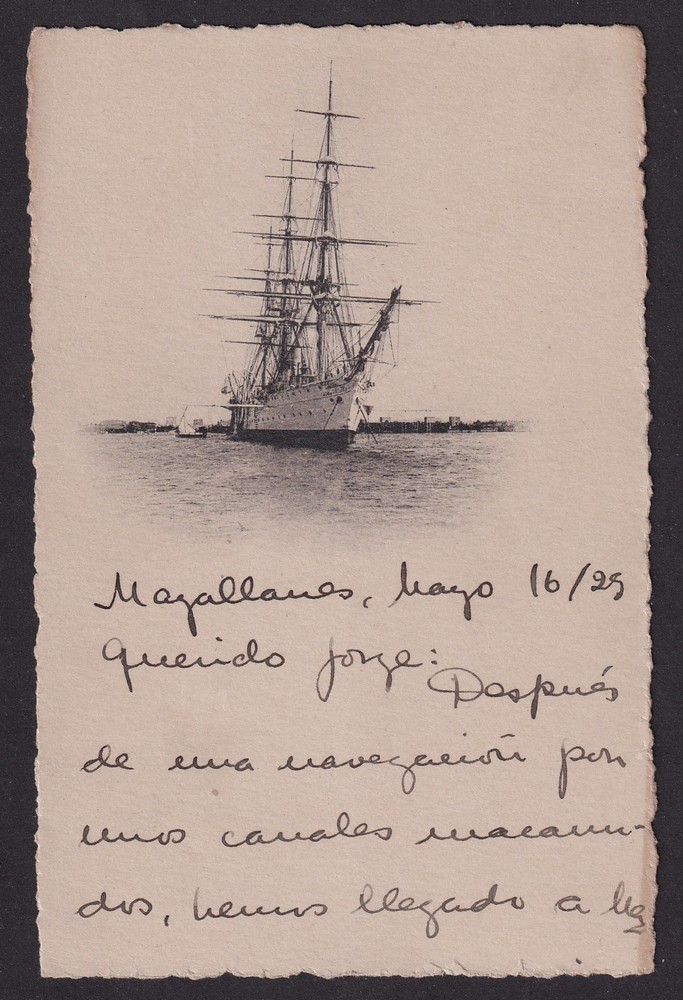 Magallanes, Mayo 16/29
Querido Jorge:
Después
de una navegación por
unos canales macanu-
dos, hemos llegado a